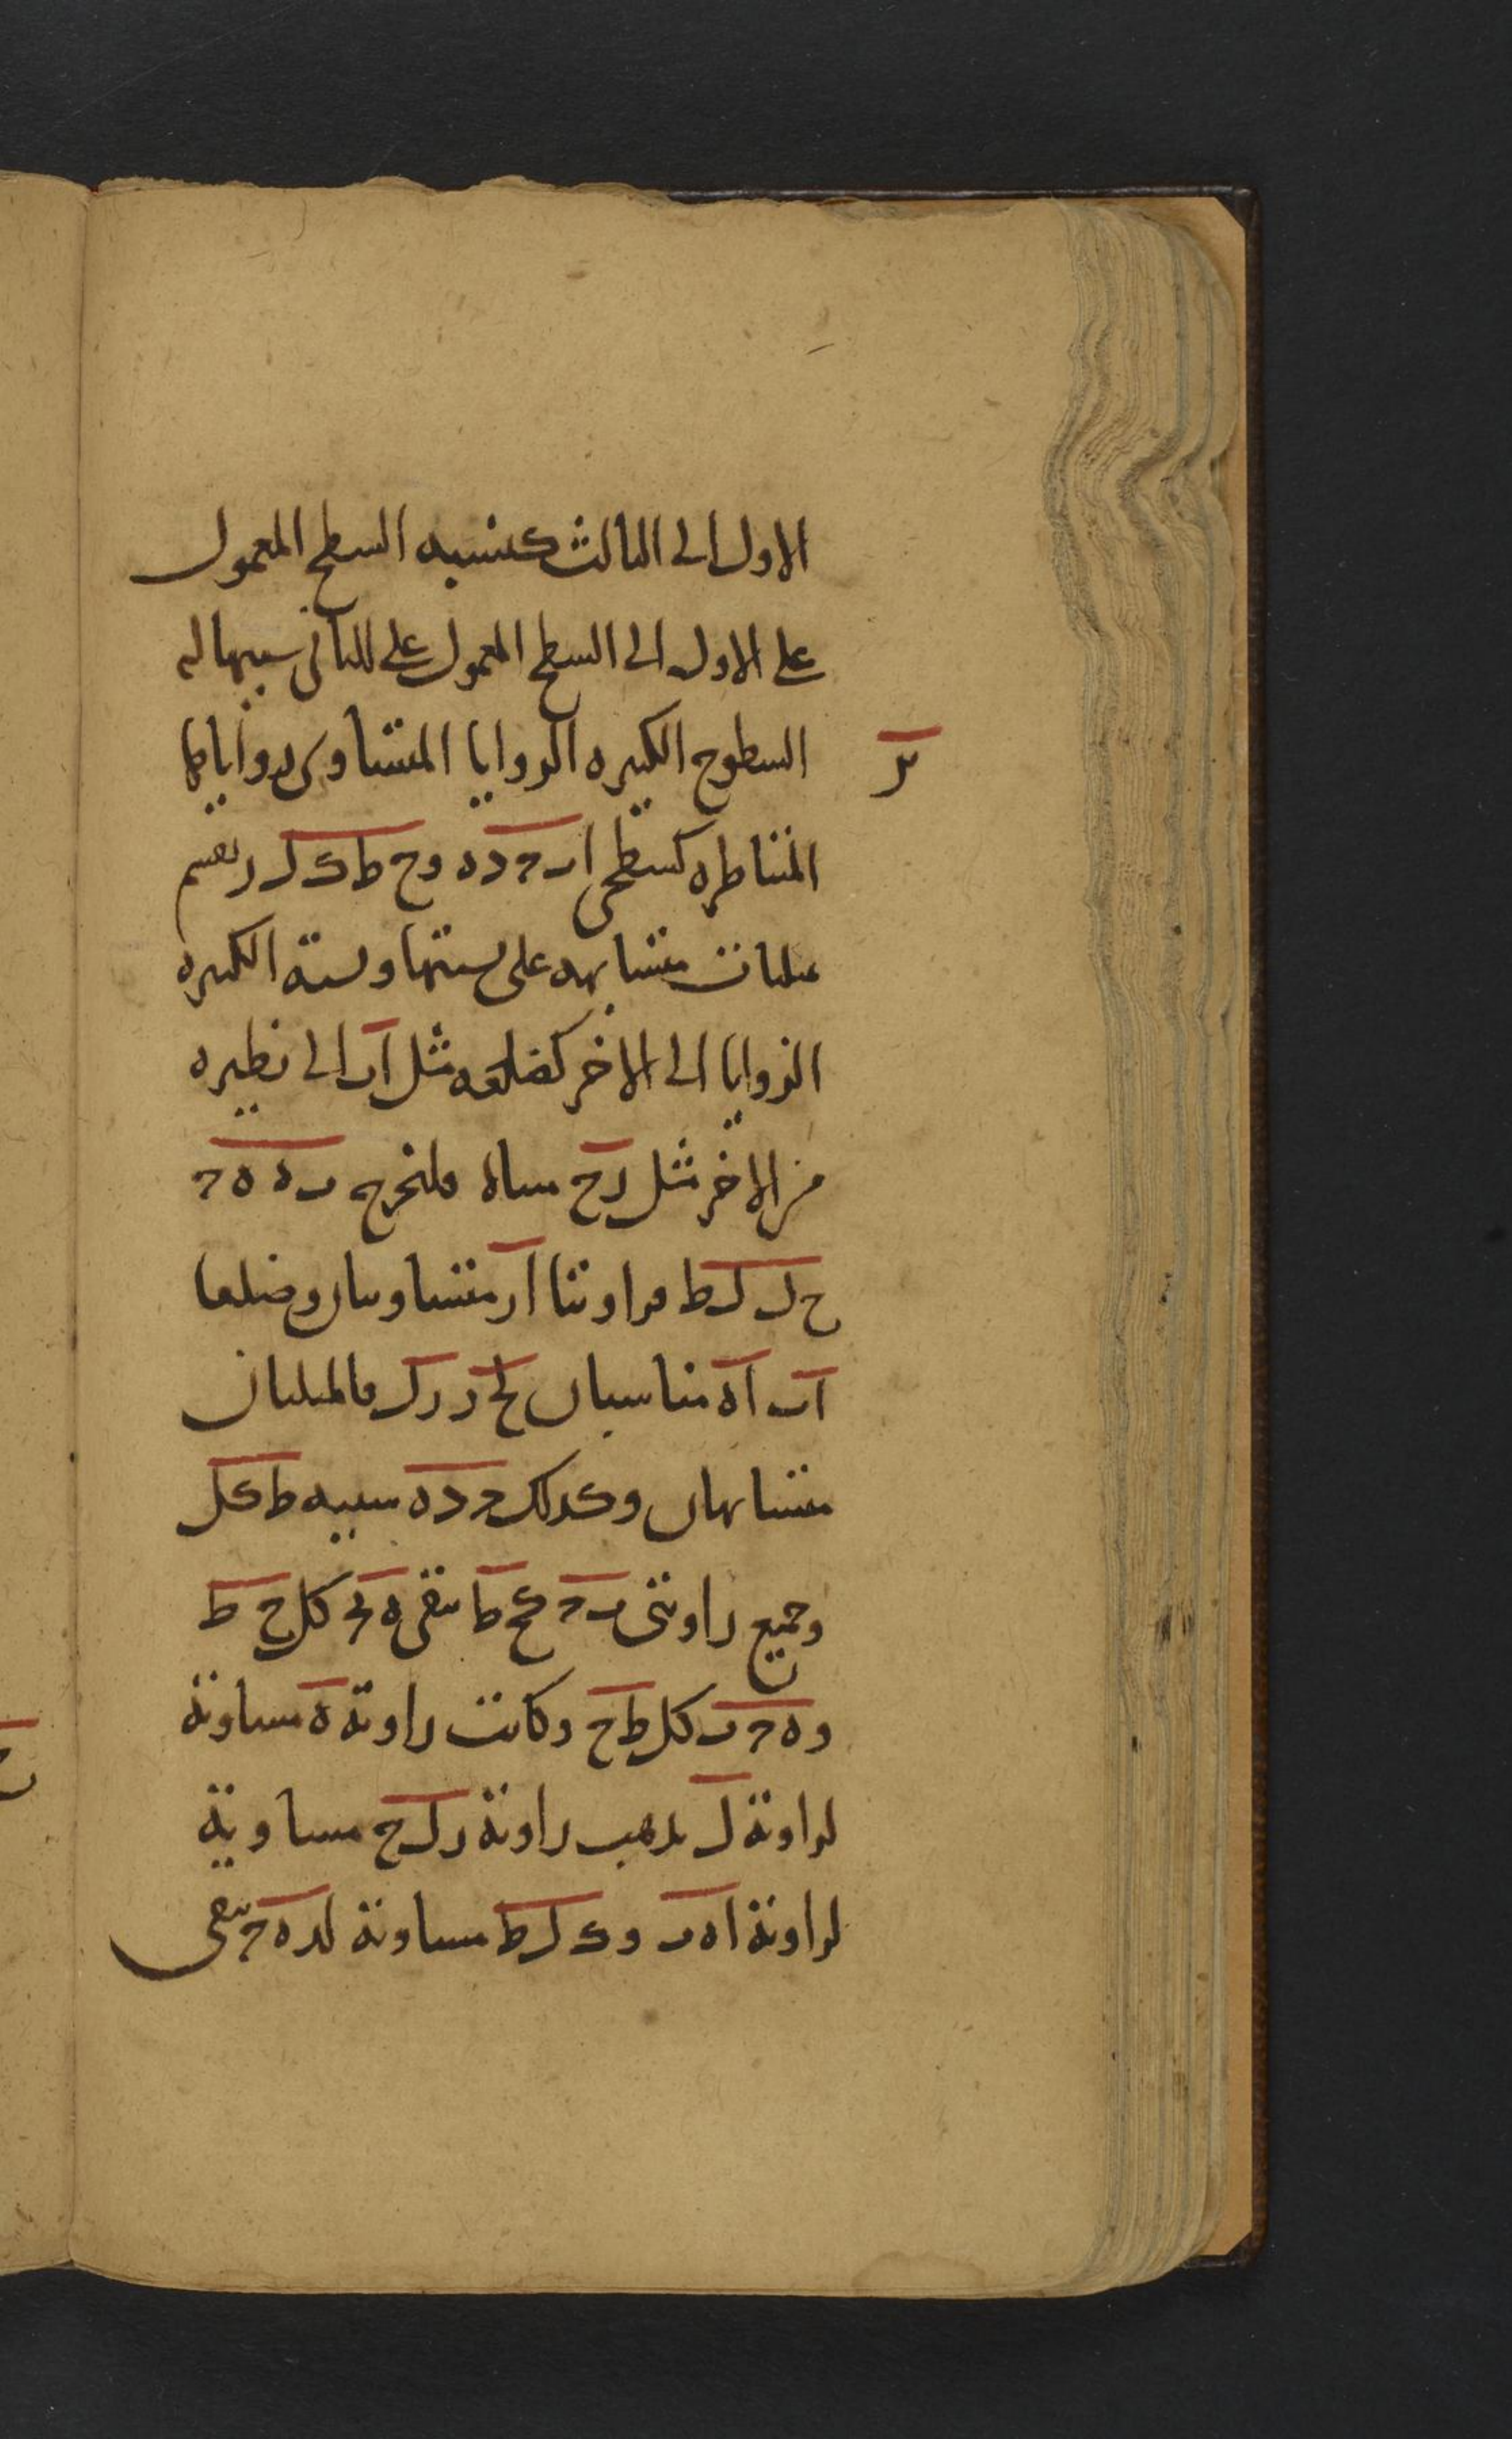 الاول الى الثالث كنسبه السطح المعمول
على الاول الى السطح المعمول على الثانى شبيها له
السطوح الكثيره الزوايا المتساوى زواياها
المتناظره كسطحى اب ح د ه و ح ط ك ل ر نقسم
مثلثات متشابهه على نسبتها ونسبة الكثيره
الزوايا الى الاخر كضلعه مثل اب الى نظيره
من الاخر مثل ر ح مثناه فلنخرج ب ه ه ح
ح ل ل ط فزاويتا ا ر متساويتان وضلعا
اب اه متناسبان لح ر ر ل فالمثلثان
متشابهان وكذلك ح د ه شبيه ط ك ل
وجميع زاويتى
و ه ح ب ك ل ط ح وكانت زاوية ه مساوية
لزاوية ل يذهب زاوية ر ل ح مساوية
لزاوية ا ه ب و ك ل ط مساوية لد ه ح يبقى